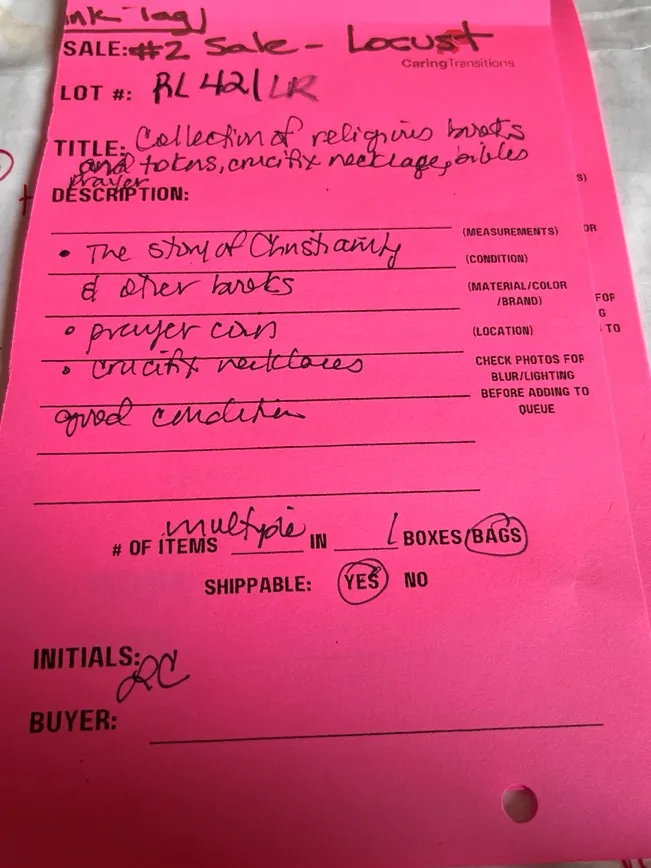 ink-tag)
SALE: #2 Sale - Locust
CaringTransitions
LOT #: RL421 LR
TITLE: Collection of religious books
and tokens, crucifix necklace, bibles
prayer
DESCRIPTION:
(MEASUREMENTS)
• The story of Christianity
(CONDITION)
& other books
(MATERIAL/COLOR
/BRAND)
• prayer coin
(LOCATION)
• crucifix necklaces
CHECK PHOTOS FOR
BLUR/LIGHTING
BEFORE ADDING TO
QUEUE
good condition
# OF ITEMS multiple IN 1 BOXES/BAGS
SHIPPABLE: YES NO
INITIALS: RC
BUYER:
S)
OR
FOR
G
TO